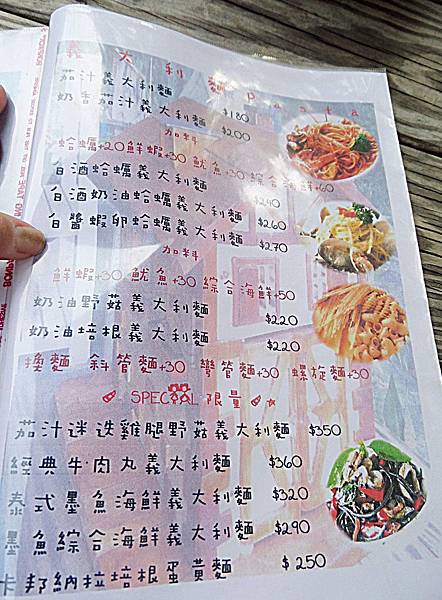 義大利麵 Pasta
茄汁義大利麵 $180
奶香茄汁義大利麵 $200
加料
蛤蠣+20 鮮蝦+30 魷魚+30 綜合海鮮+60
白酒蛤蠣義大利麵 $240
白酒奶油蛤蠣義大利麵 $260
白醬蝦卵蛤蠣義大利麵 $270
加料
鮮蝦+30 魷魚+30 綜合海鮮+50
奶油野菇義大利麵 $220
奶油培根義大利麵 $220
換麵 斜管麵+30 彎管麵+30 螺旋麵+30
SPECIAL 限量
茄汁迷迭雞腿野菇義大利麵 $350
經典牛肉丸義大利麵 $360
泰式墨魚海鮮義大利麵 $320
墨魚綜合海鮮義大利麵 $290
卡邦納拉培根蛋黃麵 $250